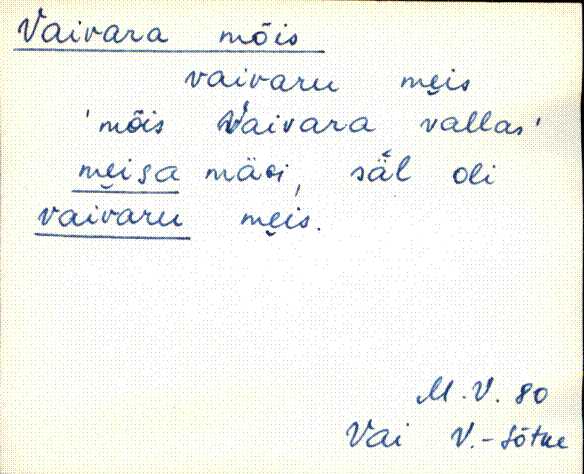 Vaivara mõis
vaivaru mẹis
'mõis Vaivara vallas'
mẹisa mäoi, säl oli
vaivaru mẹis.
M.V. 80
Vai V.-Sõtke